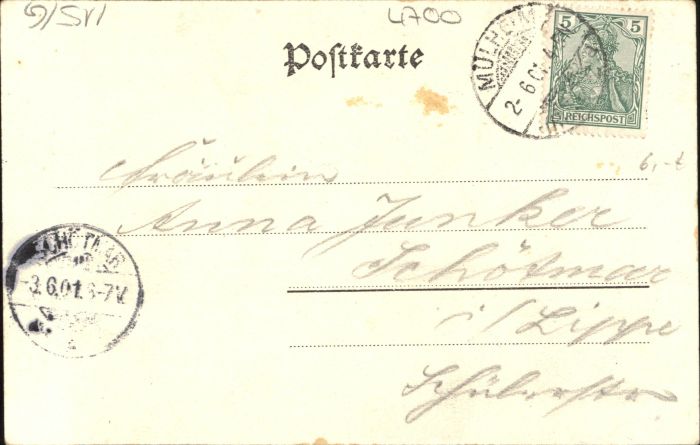 4700
Postkarte
MÜLHEIM
2. 6. 01
5 5
REICHSPOST
6,-
Fräulein
Anna Junker
Schötmar
i/Lippe
Schülerstr
3.6.01. 6-7V.